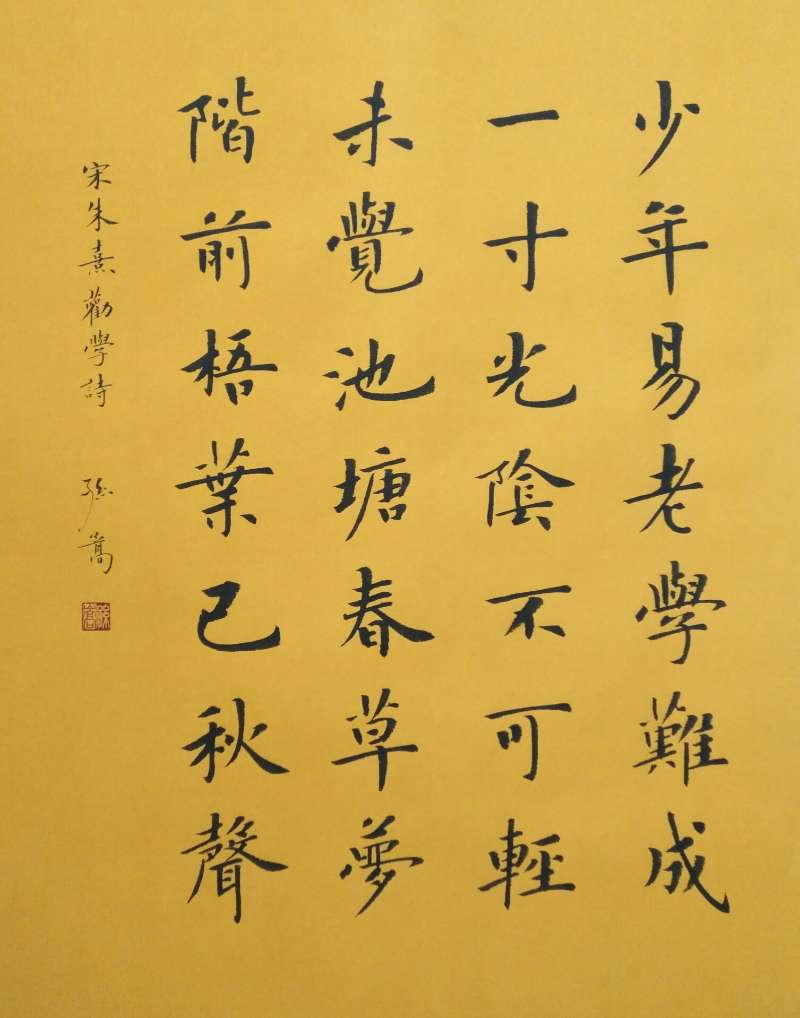 少年易老學難成
一寸光陰不可輕
未覺池塘春草夢
階前梧葉已秋聲
宋朱熹勸學詩
孫嵩